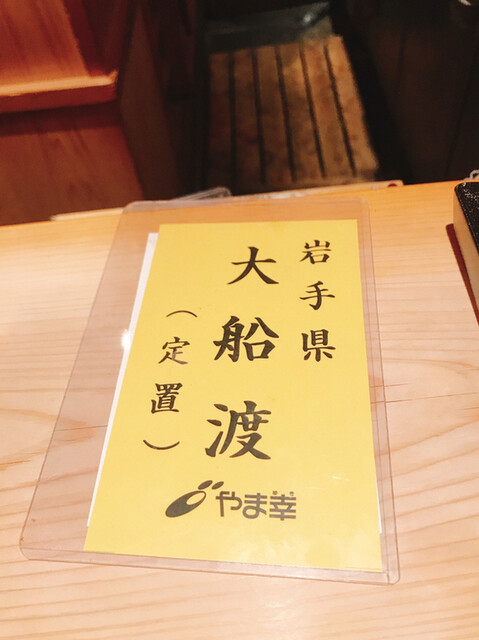 岩手県
大船渡
(定置)
やま幸